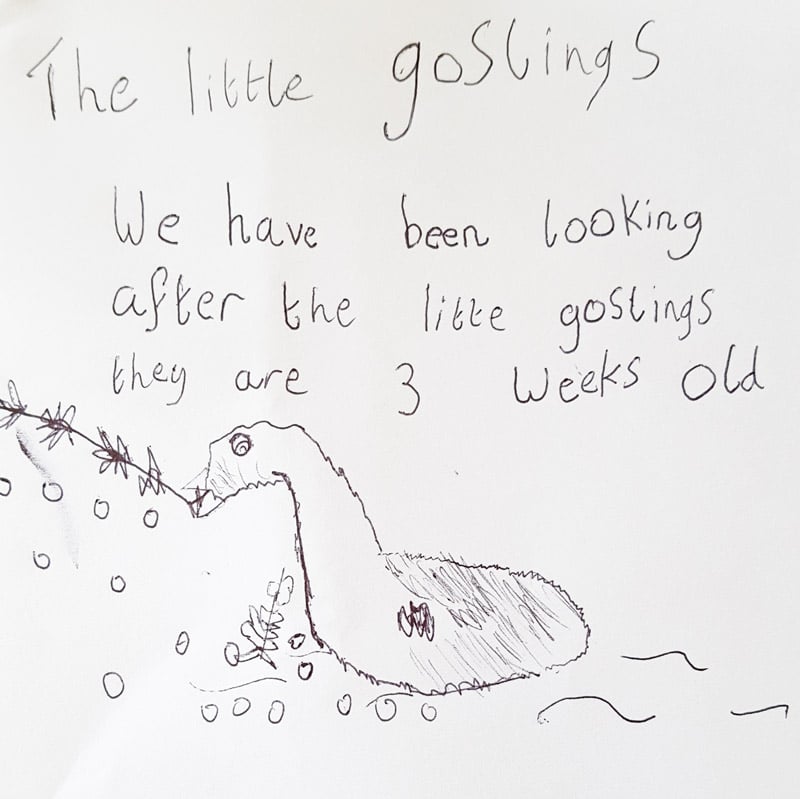 The little goslings
We have been looking
after the litte goslings
they are 3 weeks old